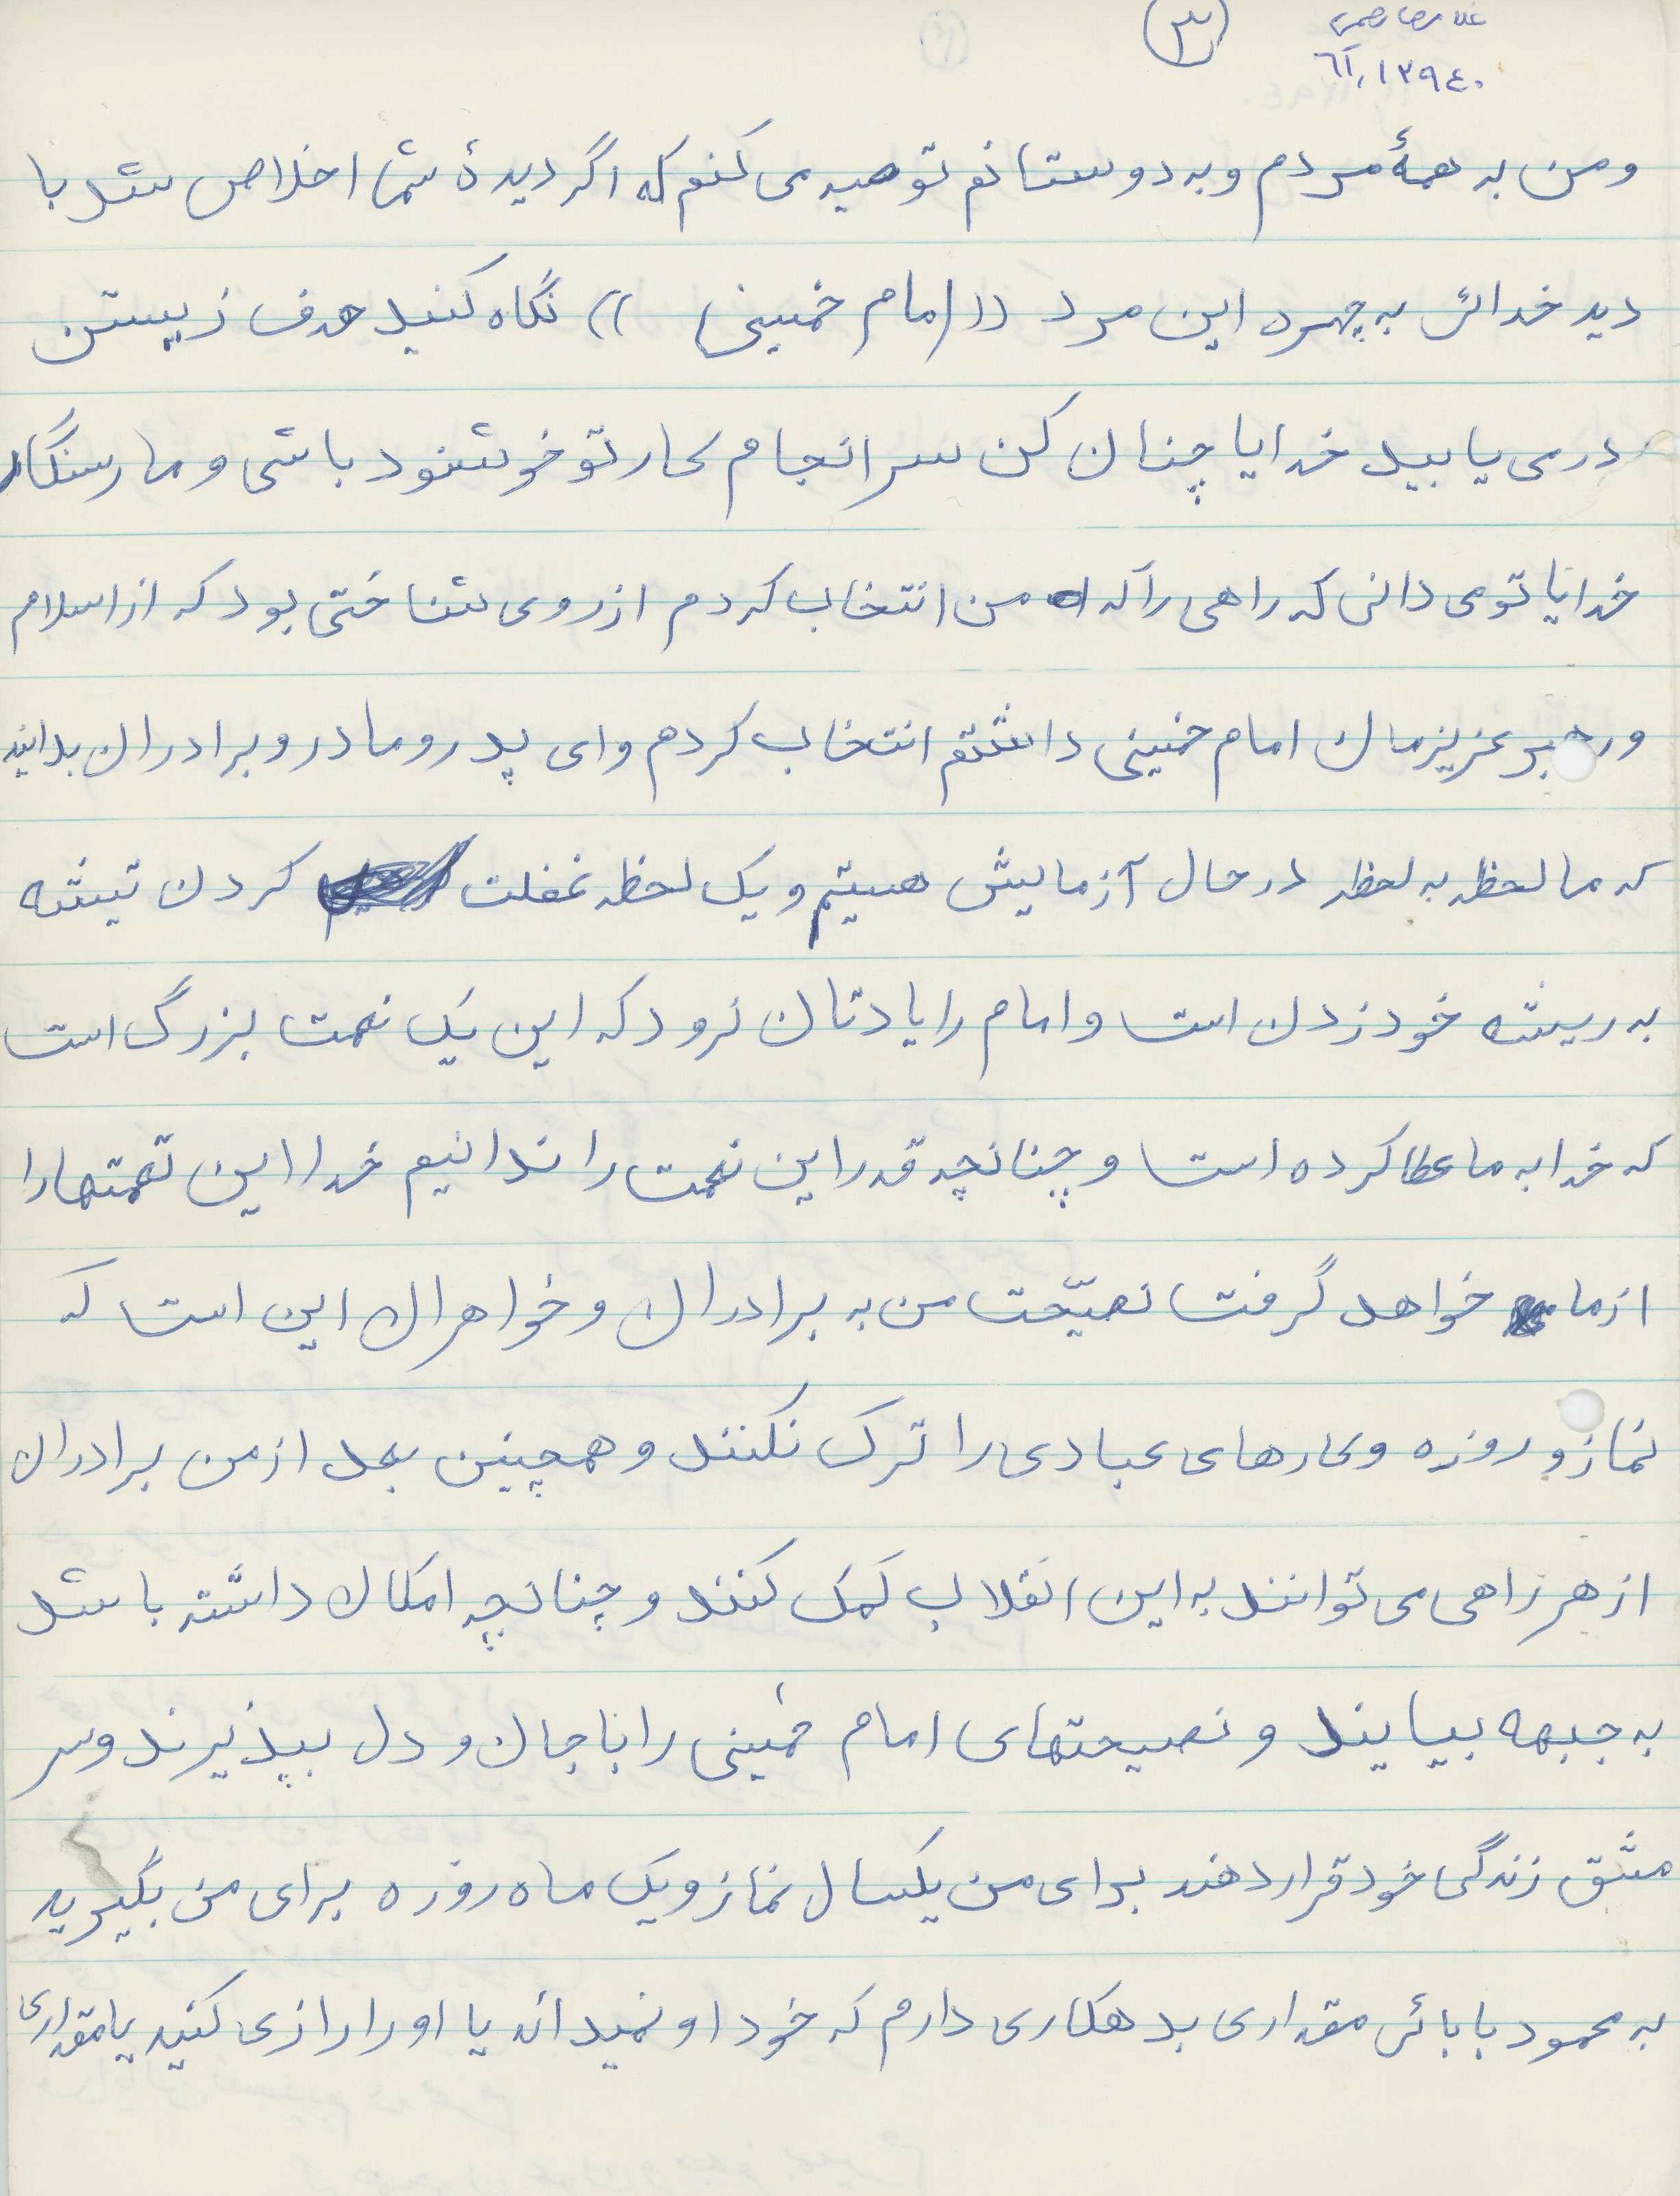 ۳
٦۱،۱۳۹٤۰
و من به همهٔ مردم و به دوستانم توصیه می کنم که اگر دیدهٔ شما اخلاص شد با
دید خدائی به چهره این مرد (( امام خمینی )) نگاه کنید هدف زیستن
در می یابید خدایا چنان کن سرانجام کار تو خوشنود باشی و ما رستگار
خدایا تو می دانی که راهی را که من انتخاب کردم از روی شناختی بود که از اسلام
و رهبر عزیزمان امام خمینی داشتم انتخاب کردم و ای پدر و مادر و برادران بدانید
که ما لحظه به لحظه در حال آزمایش هستیم و یک لحظه غفلت کردن تیشه
به ریشه خود زدن است و امام را یادتان نرود که این یک نعمت بزرگ است
که خدا به ما عطا کرده است و چنانچه قدر این نعمت را ندانیم خدا این نعمتها را
از ما خواهد گرفت نصیّحت من به برادران و خواهران این است که
نماز و روزه و کارهای عبادی را ترک نکنند و همچنین بعد از من برادران
از هر راهی می توانند به این انقلاب کمک کنند و چنانچه امکان داشته باشد
به جبهه بیایند و نصیحتهای امام خمینی را با جان و دل بپذیرند و سر
مشق زندگی خود قرار دهند برای من یکسال نماز و یک ماه روزه برای من بگیرید
به محمود بابائی مقداری بدهکاری دارم که خود او نمیداند یا او را رازی کنید یا مقداری